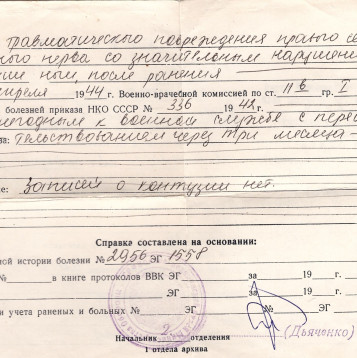 травматического повреждения правого се
ного нерва со значительным нарушение
после ранения
апреля 1944 г. Военно-врачебной комиссией по ст. 11б гр. I
болезней приказа НКО СССР № 336 1942 г.
негодным к военной службе с перео
за: тельствованием через три месяца
не: Записей о контузии нет.
Справка составлена на основании:
ной истории болезни № 2956 ЭГ 1558
№ в книге протоколов ВВК ЭГ за 19 г.
№ ЭГ за 19 г.
и учета раненых и больных № ЭГ
(Дьяченко)
Начальник 2 отделения
1 отдела архива